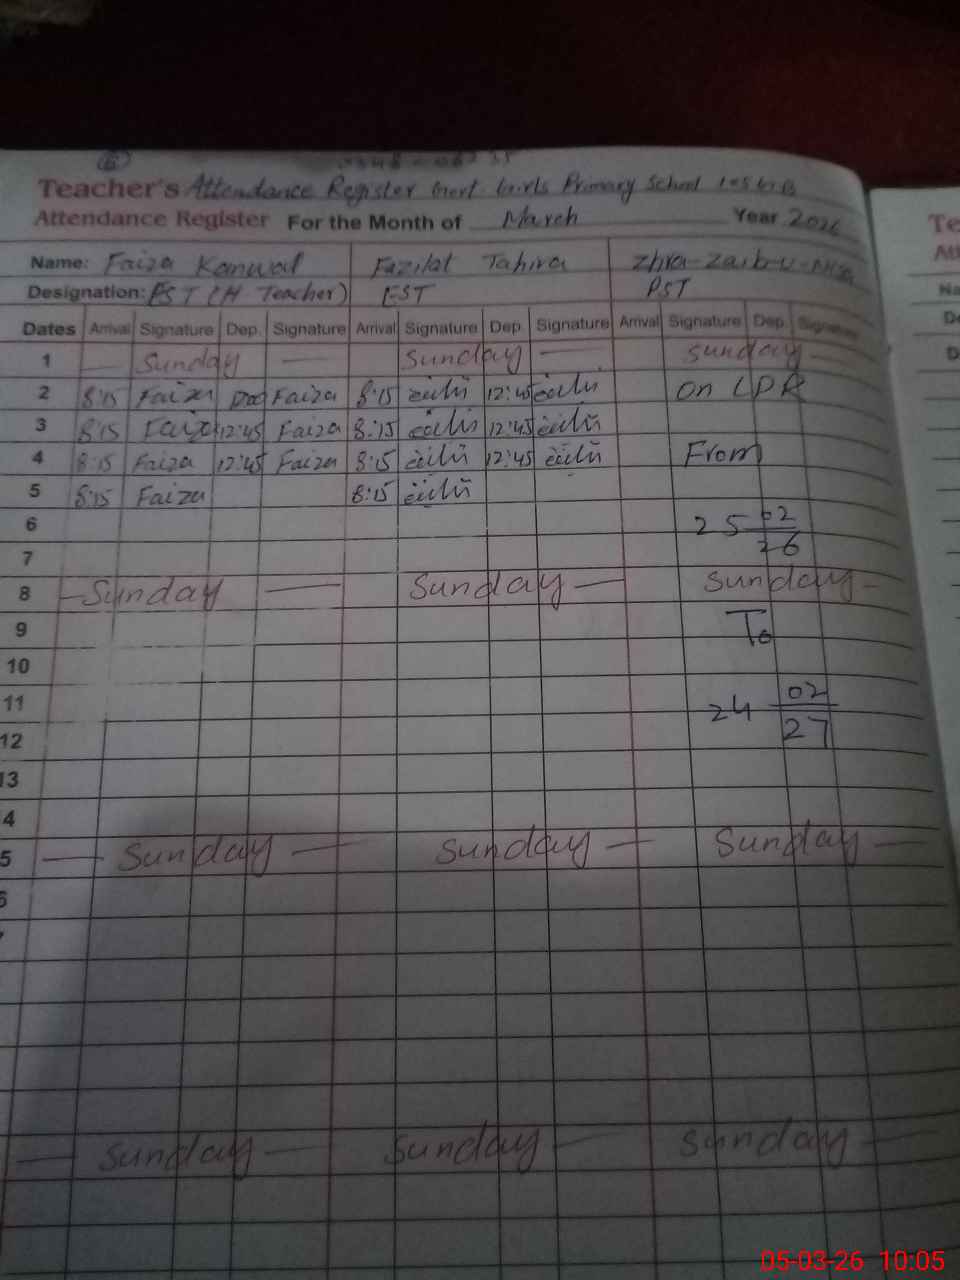 Teacher's Attendance Register Govt. Girls Primary School
Attendance Register For the Month of March Year 2026
Name: Faiza Kanwal Fazilat Tahira
Designation: EST (H Teacher) EST PST
Dates Arrival Signature Dep. Signature Arrival Signature Dep Signature Arrival Signature Dep. Signature
1 — Sunday — Sunday — Sunday
2 8:15 Faiza Faiza 8:15 12:45 On LPR
3 8:15 Faiza 12:45 Faiza 8:15 12:45
4 8:15 Faiza 12:45 Faiza 8:15 12:45 From
5 8:15 Faiza 8:15
6 25 02/26
7
8 — Sunday — Sunday — Sunday
9 To
10
11 24 02/27
12
13
4
5 — Sunday — Sunday — Sunday —
— Sunday — Sunday — Sunday —
05-03-26 10:05